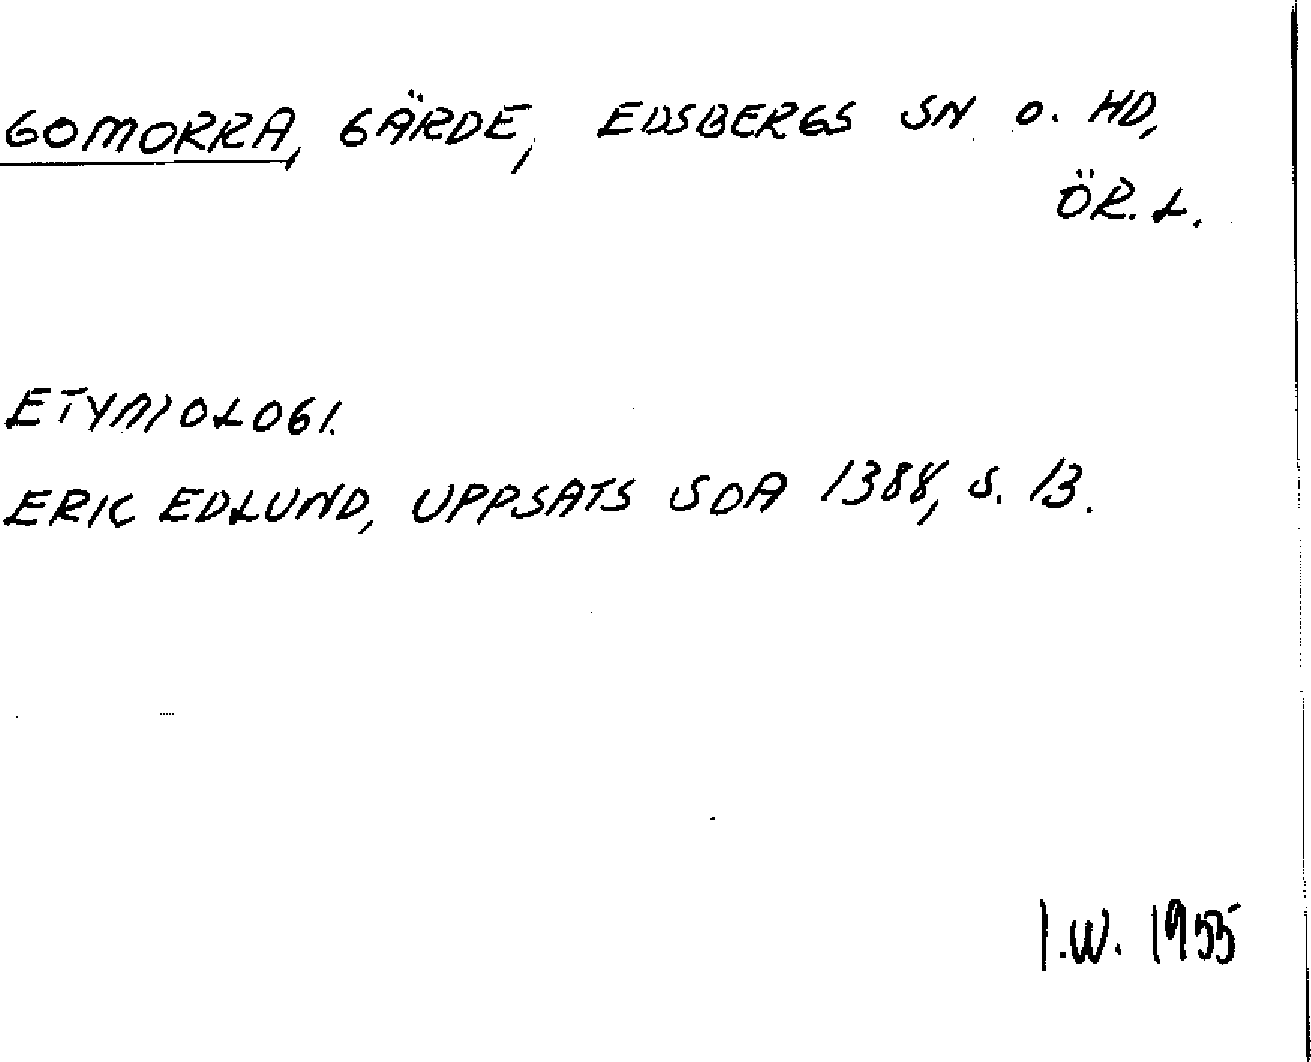 GOMORRA, GÄRDE, EDSBERGS SN O. HD,
ÖR. L.
ETYMOLOGI.
ERIC EDLUND, UPPSATS SOA 1388, S. 13.
I.W. 1955